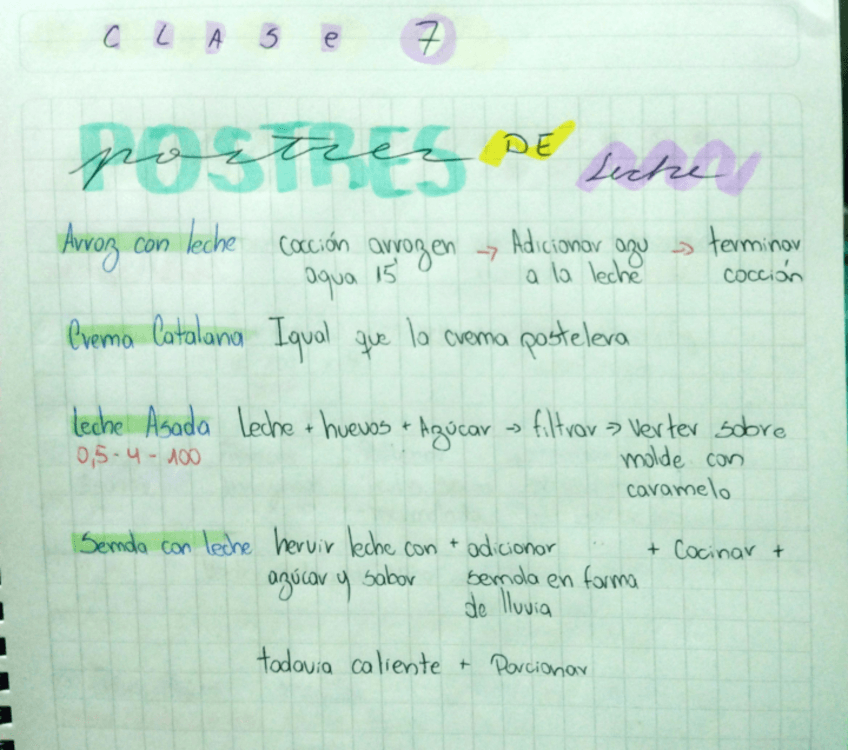 CLASe 7
POSTRES postres DE Leche
Arroz con leche cocción arroz en → Adicionar azu → terminar
agua 15' a la leche cocción
Crema Catalana Igual que la crema pastelera
leche Asada Leche + huevos + Azúcar → filtrar → verter sobre
0,5 - 4 - 100 molde con
caramelo
Semola con leche hervir leche con + adicionar + Cocinar +
azúcar y sabor semola en forma
de lluvia
todavia caliente + Porcionar